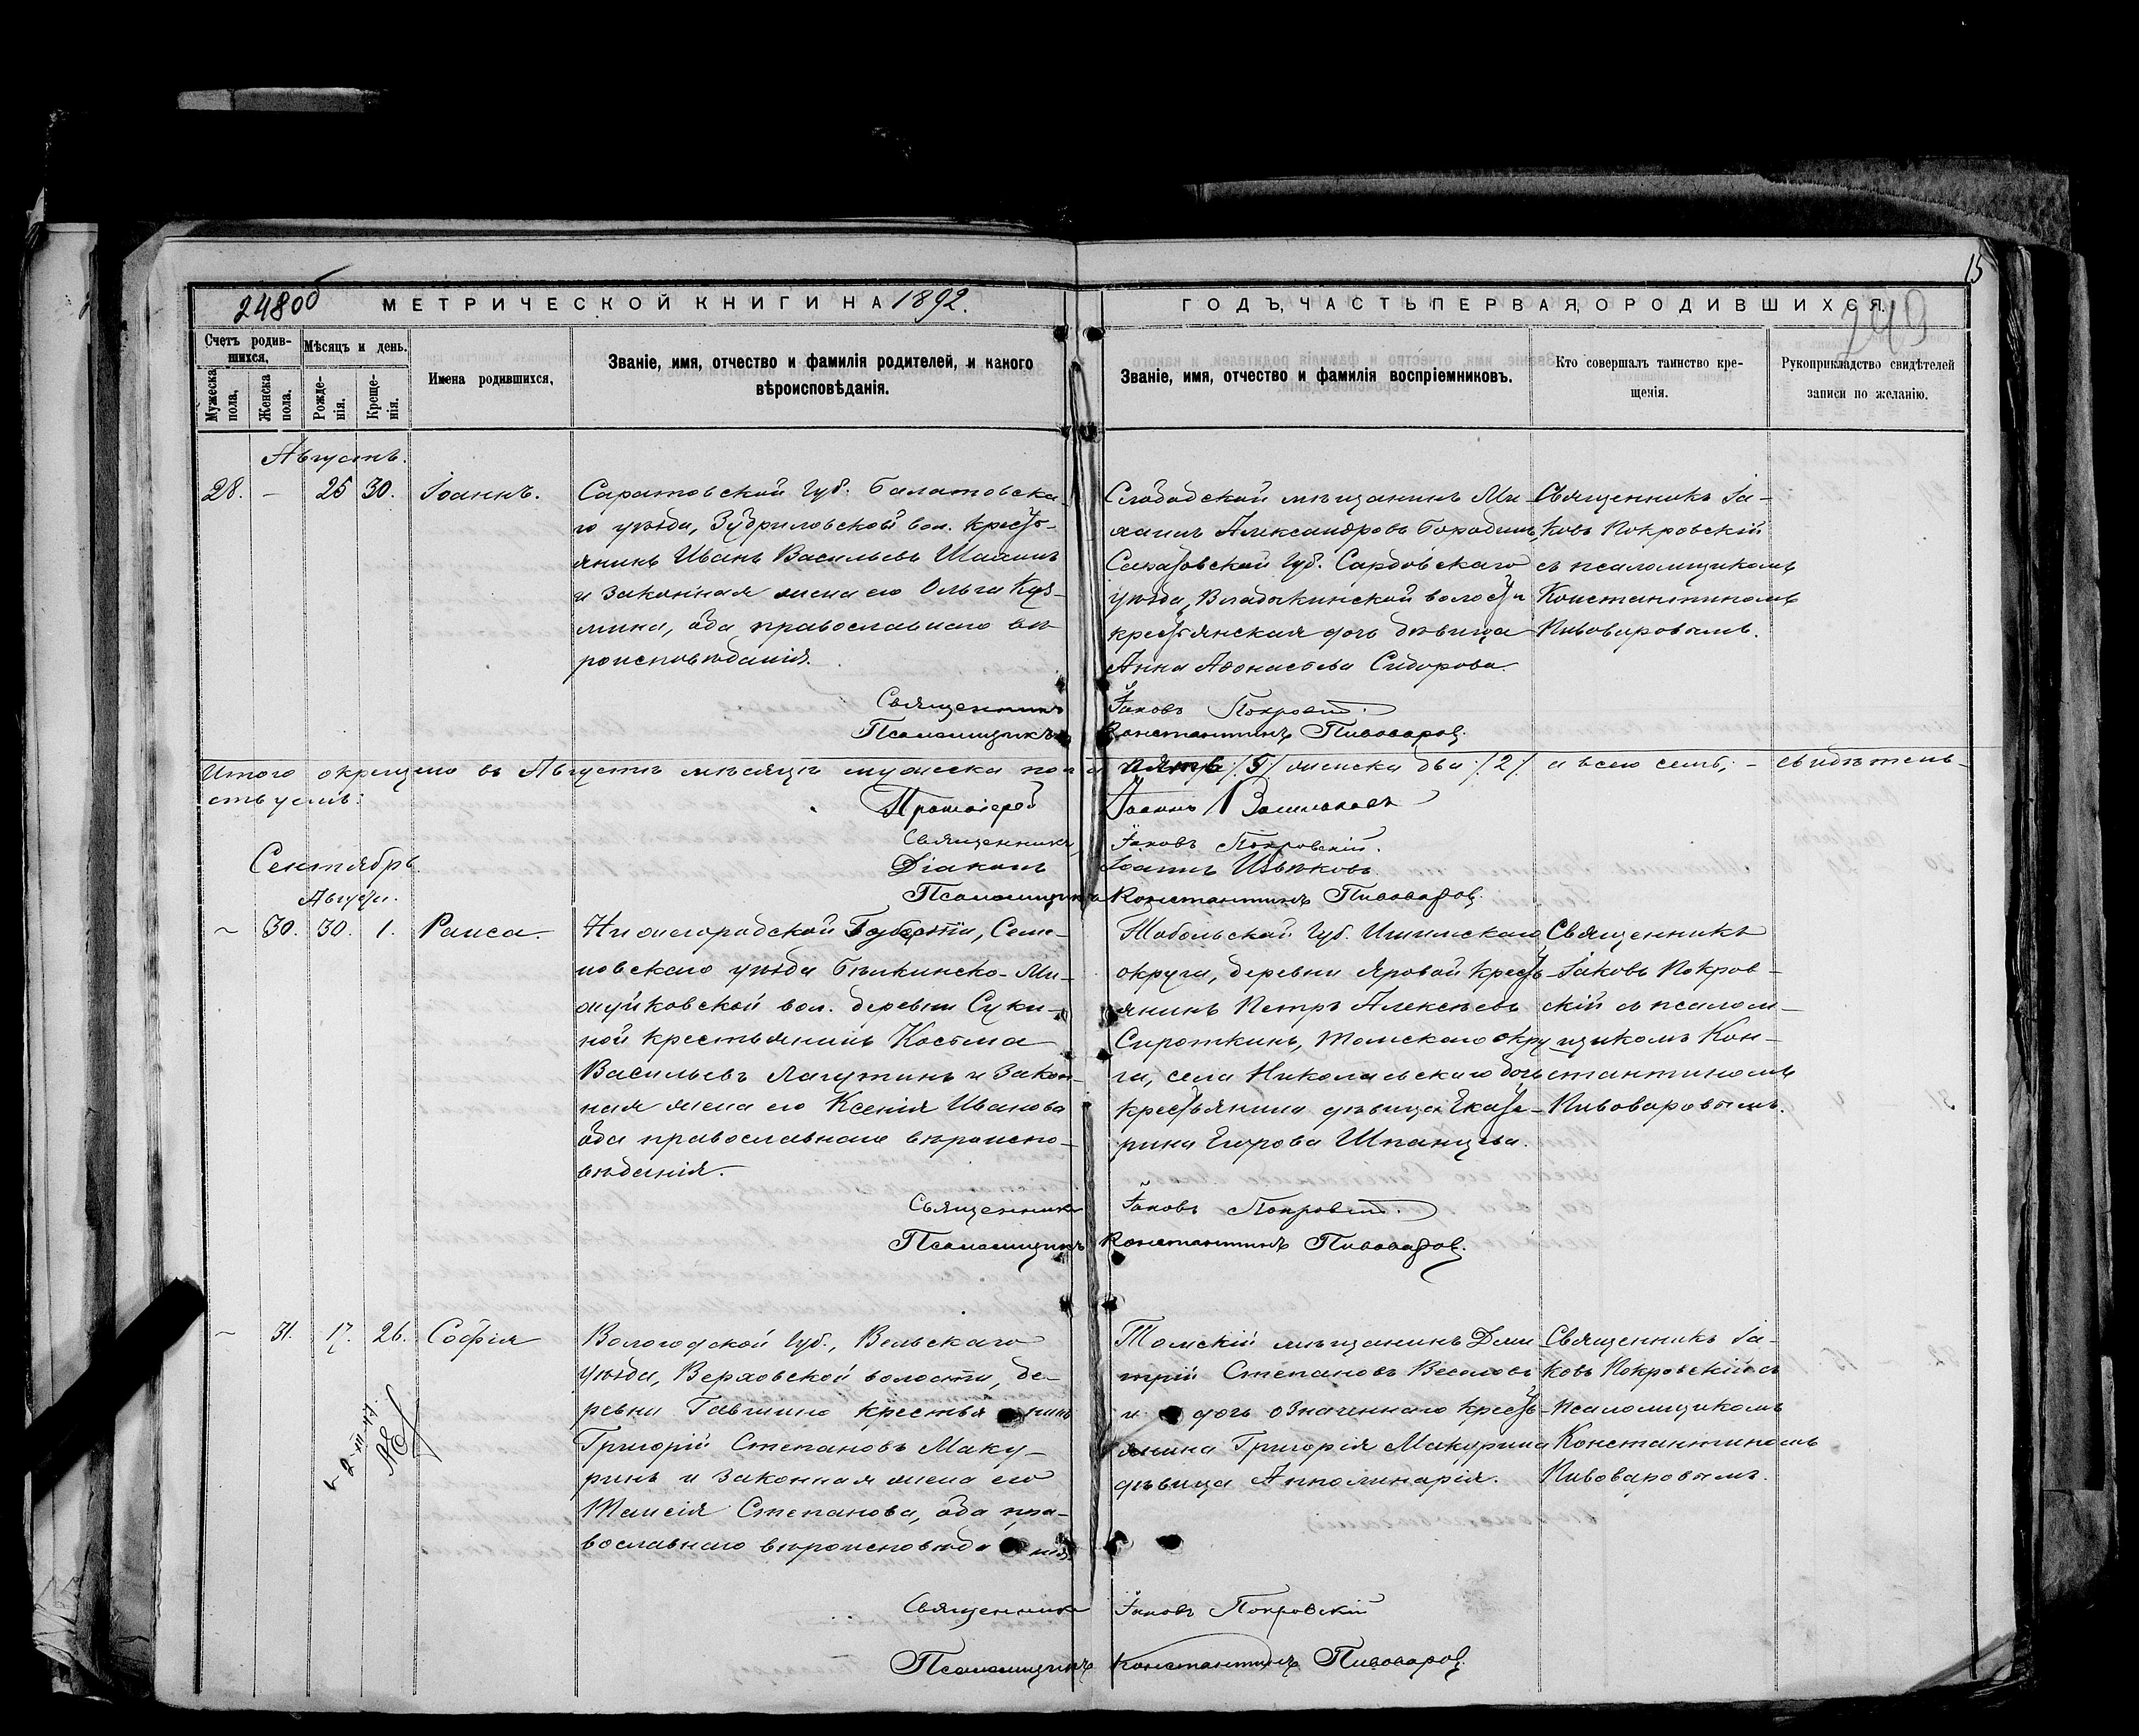 15
248об
МЕТРИЧЕСКОЙ КНИГИ НА 1892.
ГОДЪ, ЧАСТЬ ПЕРВАЯ, О РОДИВШИХСЯ.
249
Счетъ родив-
шихся,
Мужеска
пола,
Женска
пола.
Мѣсяцъ и день.
Рожде-
нія.
Креще-
нія.
Имена родившихся,
Званіе, имя, отчество и фамилія родителей, и какого
вѣроисповѣданія.
Званіе, имя, отчество и фамилія воспріемниковъ.
Кто совершалъ таинство кре-
щенія.
Рукоприкладство свидѣтелей
записи по желанію.
Августъ.
28. – 25 30. Іоаннъ.
Саратовской Губ. Балатовска
го уѣзда, Зубриловской вол. кресть-
янинъ Иванъ Васильевъ
и законная жена его Ольга Куз-
мина, оба православнаго вѣ-
роисповѣданія.
Слободской мѣщанинъ Ми-
хаилъ Александровъ Бородинъ,
Саратовской Губ. Сардовскаго
уѣзда, Владыкинской волости
крестьянская дочь дѣвица
Анна Афонасьева Сидорова.
Священникъ Іа-
ковъ Покровскій
съ псаломщикомъ
Константиномъ
Пивоваровымъ.
Священникъ Іаковъ Покровскій.
Псаломщикъ Константинъ Пивоваровъ.
Итого окрещено въ Августѣ мѣсяцѣ мужеска пола пять /5/ женска два /2/ а всего семь, – свидѣтель-
ствуемъ:
Протоіерей Іоаннъ Васильковъ
Священникъ Іаковъ Покровскій.
Діаконъ Іоаннъ
Псаломщикъ Константинъ Пивоваровъ.
Сентябрь.
Августа.
~ 30. 30. 1. Раиса.
Нижегородской Губерніи, Семе-
новскаго уѣзда
вол. деревни Суки-
ной крестьянинъ Косьма
Васильевъ Лагутинъ и закон-
ная жена его Ксенія Иванова
оба православнаго вѣроиспо-
вѣданія.
Тобольской Губ. Ишимскаго
округа, деревни Яровой кресть-
янинъ Петръ Алексѣевъ
Сироткинъ, Томскаго окру
га, села Николаевскаго дочь
крестьянина дѣвица Екате-
рина Егорова
Священникъ
Іаковъ Покров-
скій съ псалом-
щикомъ Кон-
стантиномъ
Пивоваровымъ.
Священникъ Іаковъ Покровскій.
Псаломщикъ Константинъ Пивоваровъ.
~ 31. 17. 26. Софія
Вологодской Губ., Вельскаго
уѣзда, Верховской волости, де-
ревни Гавшино крестьянинъ
Григорій Степановъ Маку-
ринъ и законная жена его
Таисія Степанова, оба пра-
вославнаго вѣроисповѣданія
Томскій мѣщанинъ Дми
трій Степановъ
и дочь означеннаго кресть-
янина Григорія Макурина
дѣвица Апполинарія.
Священникъ Іа-
ковъ Покровскій съ
псаломщикомъ
Константиномъ
Пивоваровымъ.
Священникъ Іаковъ Покровскій
Псаломщикъ Константинъ Пивоваровъ.